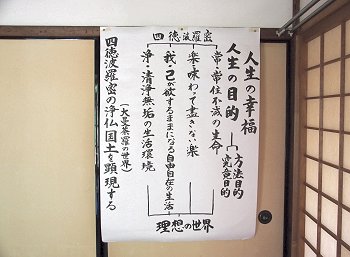 人生の幸福
人生の目的
方法目的
究竟目的
四徳波羅密
常・常住不滅の生命
楽・味わって尽きない楽
我・己が欲するままになる自由自在の生活
浄・清浄無垢の生活環境
理想の世界
(大曼荼羅の世界)
四徳波羅密の浄仏国土を顕現する